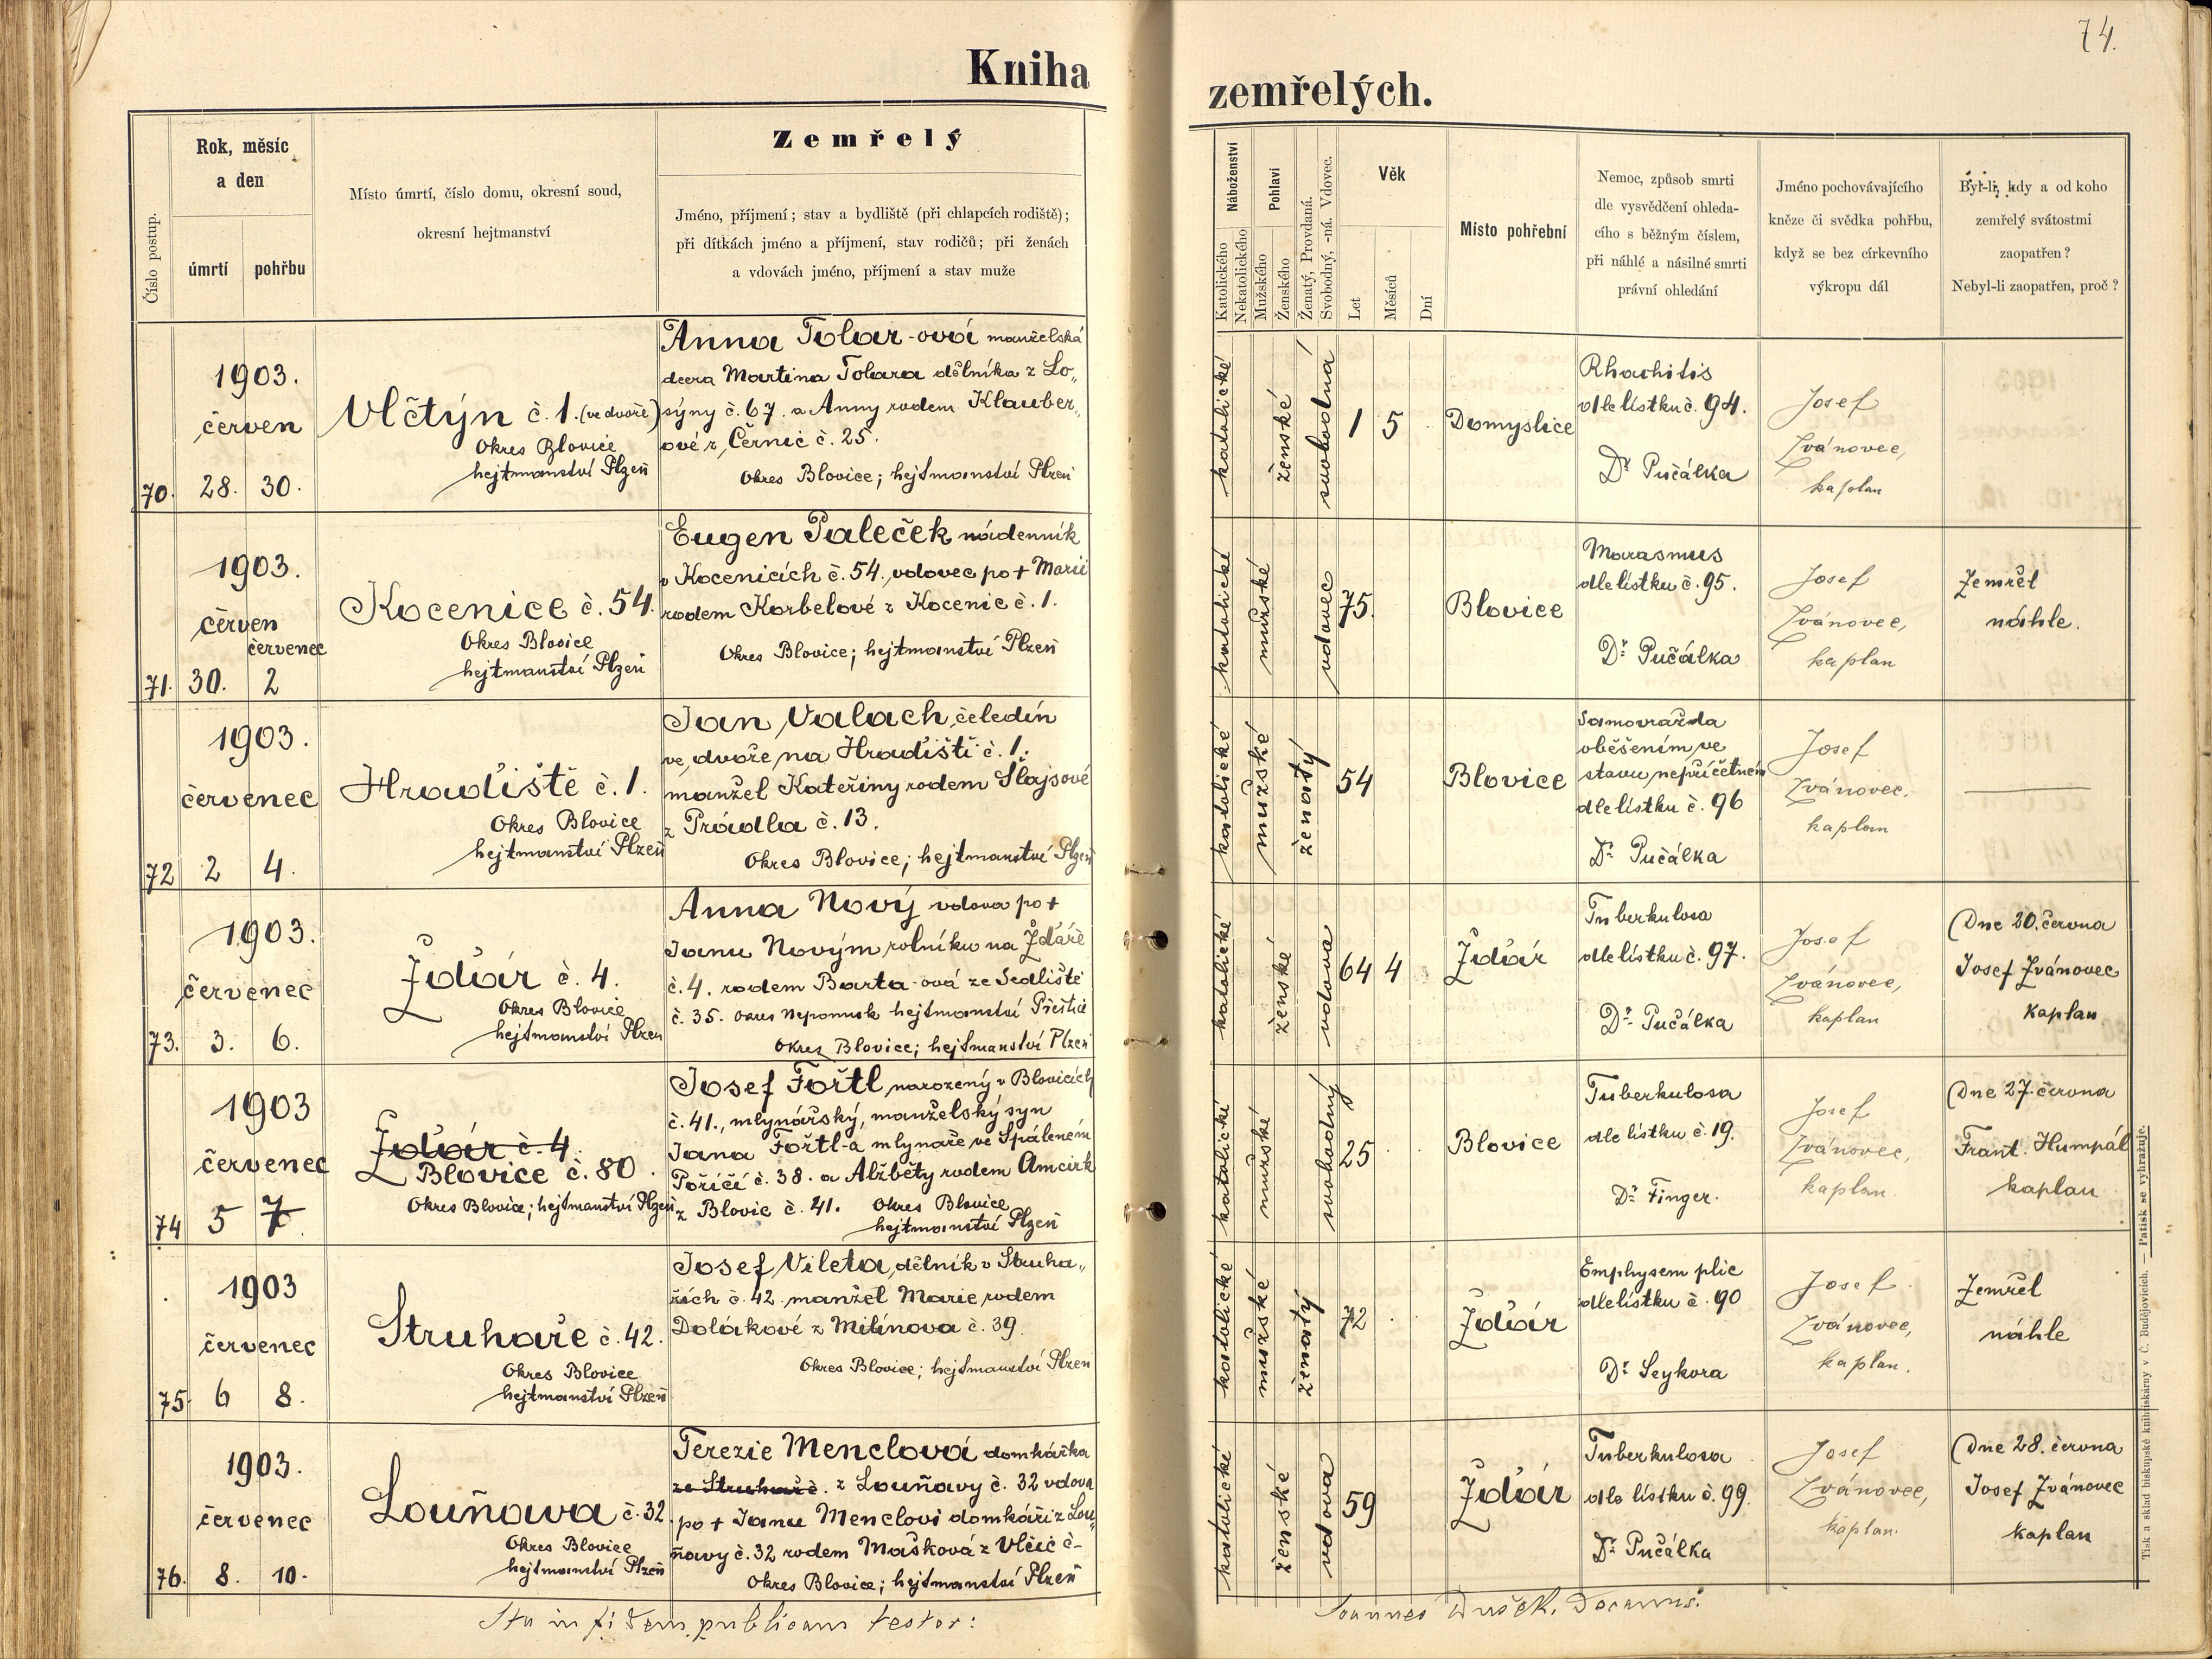 74.
Kniha zemřelých.
Číslo postup.
Rok, měsíc
a den
úmrtí pohřbu
Místo úmrtí, číslo domu, okresní soud,
okresní hejtmanství
Zemřelý
Jméno, příjmení; stav a bydliště (při chlapcích rodiště);
při dítkách jméno a příjmení, stav rodičů; při ženách
a vdovách jméno, příjmení a stav muže
Náboženství
Katolického
Nekatolického
Pohlaví
Mužského
Ženského
Ženatý, Provdaná.
Svobodný, -ná. Vdovec.
Věk
Let
Měsíců
Dní
Místo pohřební
Nemoc, způsob smrti
dle vysvědčení ohleda-
cího s běžným číslem,
při náhlé a násilné smrti
právní ohledání
Jméno pochovávajícího
kněze či svědka pohřbu,
když se bez církevního
výkropu dál
Byl-li, kdy a od koho
zemřelý svátostmi
zaopatřen?
Nebyl-li zaopatřen, proč?
70.
1903.
červen
28. 30.
Vlčtýn č. 1. (ve dvoře)
Okres Blovice
hejtmanství Plzeň
Anna Tolar-ová manželská
dcera Martina Tolara dělníka z Lo„
sýny č. 67. a Anny rodem Klauber„
ové z Černic č. 25.
Okres Blovice; hejtmanství Plzeň
katolické
ženské
svobodná
1 5
Domyslice
Rhachitis
dle lístku č. 94.
Dr Pučálka
Josef
Zvánovec,
kaplan
71.
1903.
červen
červenec
30. 2
Kocenice č. 54.
Okres Blovice
hejtmanství Plzeň
Eugen Paleček nádenník
v Kocenicích č. 54., vdovec po + Marii
rodem Korbelové z Kocenic č. 1.
Okres Blovice; hejtmanství Plzeň
katolické
mužské
vdovec
75.
Blovice
Marasmus
dle lístku č. 95.
Dr Pučálka
Josef
Zvánovec,
kaplan
Zemřel
náhle.
72
1903.
červenec
2 4.
Hradiště č. 1.
Okres Blovice
hejtmanství Plzeň
Jan Valach, čeledín
ve dvoře na Hradišti č. 1.
manžel Kateřiny rodem Šlajsové
z Prádla č. 13.
Okres Blovice; hejtmanství Plzeň
katolické
mužské
ženatý
54
Blovice
Samovražda
oběšením ve
stavu nepříčetném
dle lístku č. 96
Dr Pučálka
Josef
Zvánovec.
kaplan
73.
1903.
červenec
3. 6.
Žďár č. 4.
Okres Blovice
hejtmanství Plzeň
Anna Nový vdova po +
Janu Novým rolníku na Žďáře
č. 4. rodem Barta-ová ze Sedliště
č. 35. okres Nepomuk hejtmanství Přeštice
Okres Blovice; hejtmanství Plzeň
katolické
ženské
vdova
64 4
Žďár
Tuberkulosa
dle lístku č. 97.
Dr Pučálka
Josef
Zvánovec,
kaplan
Dne 20. června
Josef Zvánovec
kaplan
74
1903
červenec
5 7
Žďár č. 4
Blovice č. 80.
Okres Blovice; hejtmanství Plzeň
Josef Fořtl, narozený v Blovicích
č. 41., mlynářský, manželský syn
Jana Fořtl-a mlynáře ve Spáleném
Poříčí č. 38. a Alžběty rodem Amcirk
z Blovic č. 41. Okres Blovice
hejtmanství Plzeň
katolické
mužské
svobodný
25
Blovice
Tuberkulosa
dle lístku č. 19.
Dr Finger.
Josef
Zvánovec,
kaplan.
Dne 27. června
Frant. Humpál
kaplan
75.
1903
červenec
6 8.
Struhaře č. 42.
Okres Blovice
hejtmanství Plzeň
Josef Vileta, dělník v Struha„
řích č. 42. manžel Marie rodem
Dolákové z Mítínova č. 39.
Okres Blovice; hejtmanství Plzeň
katolické
mužské
ženatý
72
Žďár
Emphysem plic
dle lístku č. 90
Dr Seykora
Josef
Zvánovec,
kaplan.
Zemřel
náhle
76.
1903.
červenec
8. 10.
Louňava č. 32.
Okres Blovice
hejtmanství Plzeň
Terezie Menclová domkářka
ze Struhař č. z Louňavy č. 32 vdova
po + Janu Menclovi domkáři z Lou„
ňavy č. 32 rodem Mašková z Vlčic č-
Okres Blovice; hejtmanství Plzeň
katolické
ženské
vdova
59
Žďár
Tuberkulosa
dle lístku č. 99.
Dr Pučálka
Josef
Zvánovec,
kaplan.
Dne 28. června
Josef Zvánovec
kaplan
Ita in fidem publicam testor:
Joannes Dušek, Decanus.
Tisk a sklad biskupské knihtiskárny v Č. Budějovicích. — Patisk se vyhražuje.